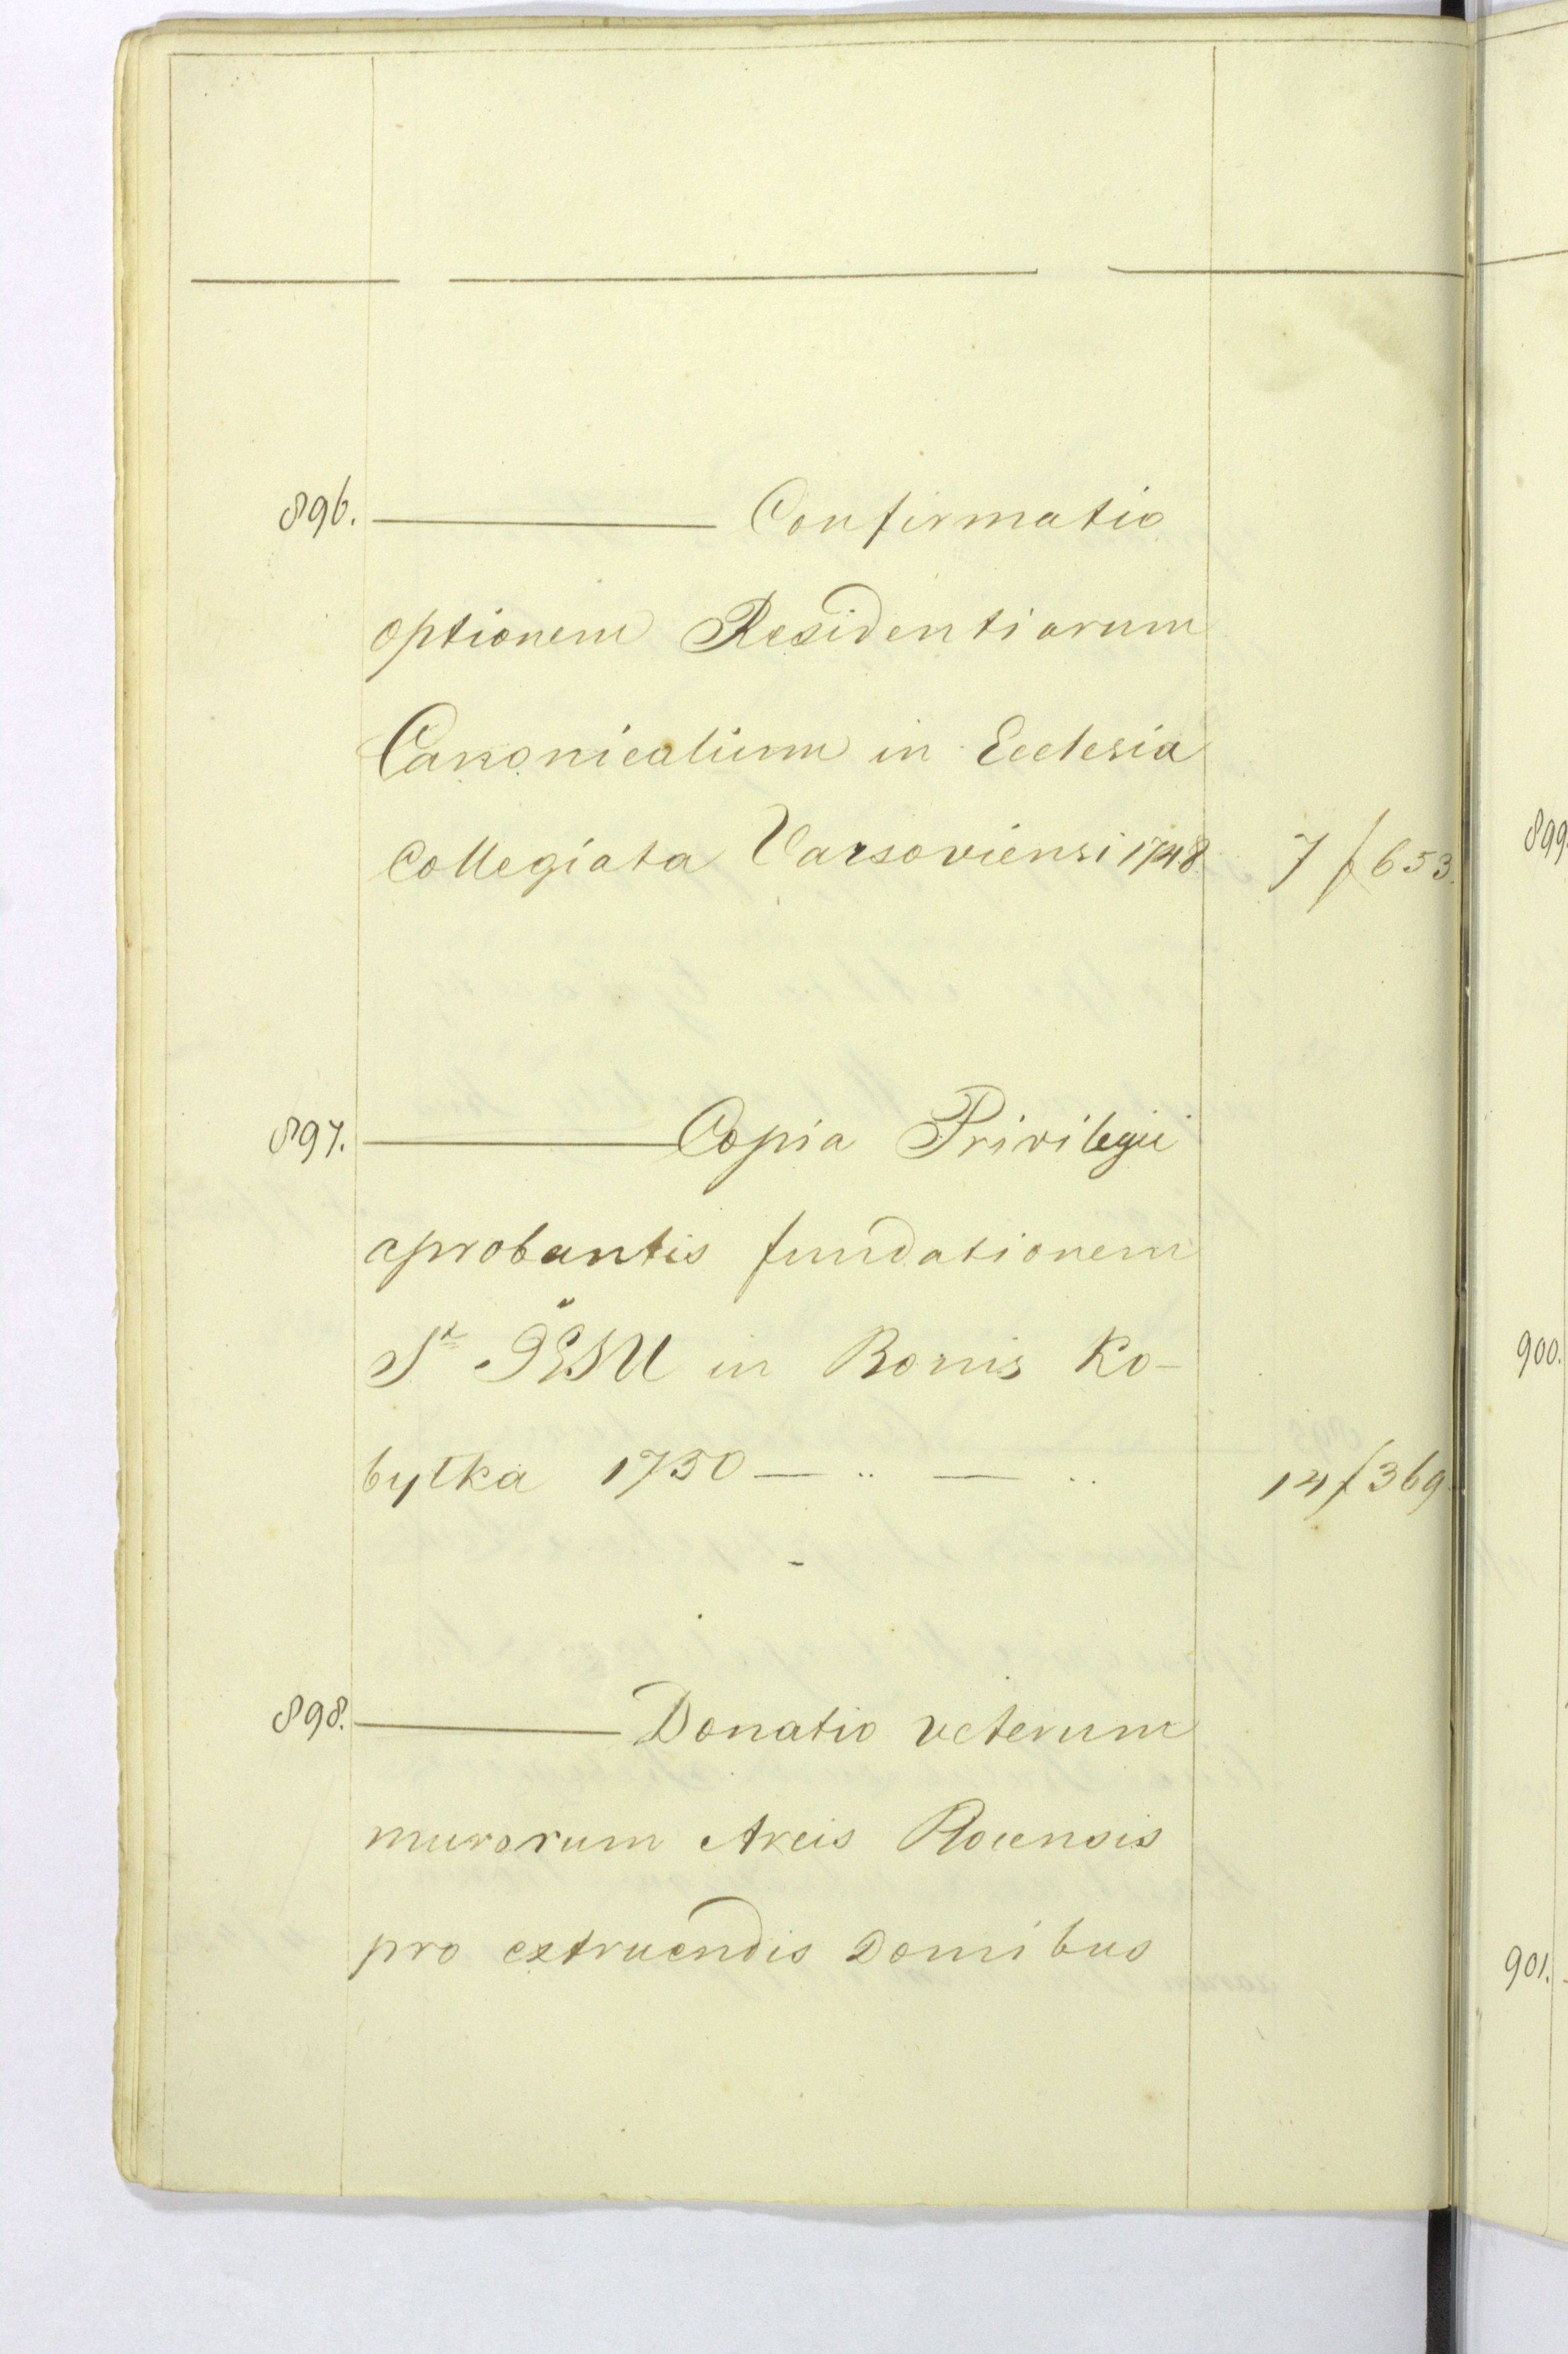 896. Confirmatio
optionem Residentiarum
Canonicalium in Ecclesia
Collegiata Varsoviensi 1748 7 f 653.
897. Copia Privilegii
aprobantis fundationem
in Bonis Ko-
bytka 1750 — .. — .. 14 f 369
898. Donatio veterum
murorum Arcis Plocensis
pro extruendis Domibus
899.
900.
901.